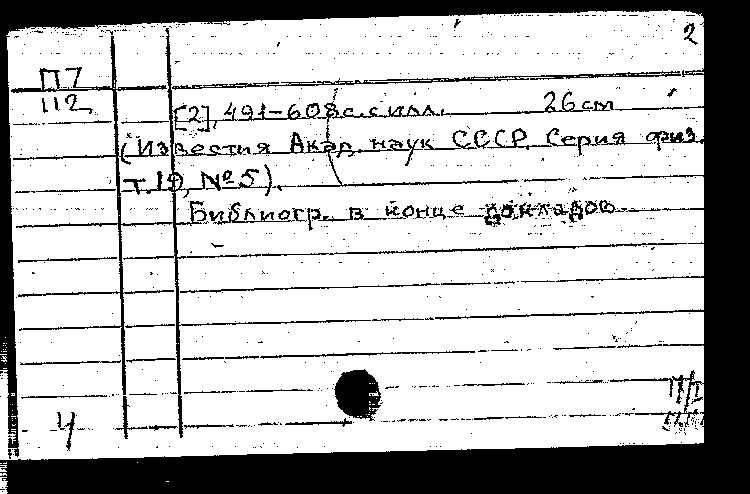 2
П7
112
[2], 491-608 с. с илл. 26 см
(Известия Акад. наук СССР. Серия физ.
т. 19, № 5).
Библиогр. в конце докладов
4